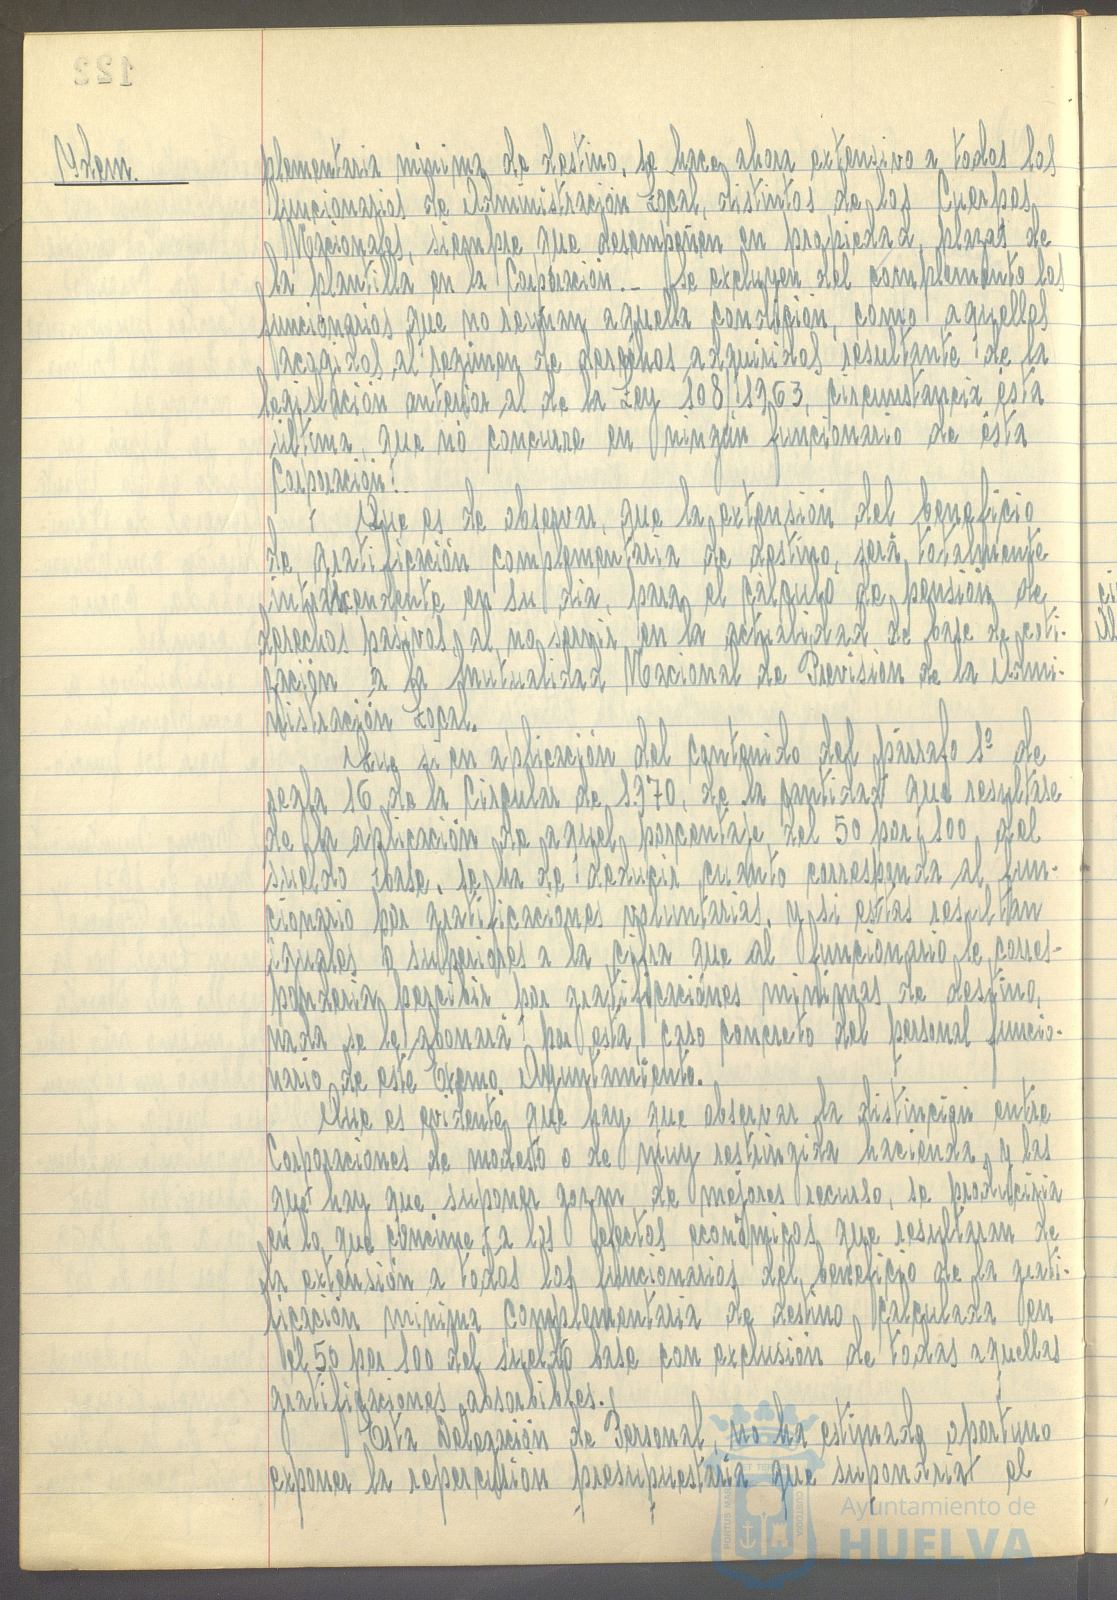 122
Ydem.
plementaria mínima de destino, se hace ahora extensivo a todos los
funcionarios de Administración Local, distintos de los Cuerpos
Nacionales, siempre que desempeñen en propiedad, plazas de
la plantilla en la Corporación.- Se excluyen del complemento los
funcionarios que no reunan aquella condición, como aquellos
acogidos al regimen de derechos adquiridos resultante de la
legislación anterior al de la Ley 108/1963, circunstancia ésta
última, que no concurre en ningún funcionario de ésta
Corporación.
Que es de observar, que la extensión del beneficio
de gratificación complementaria de destino, será totalmente
intrascendente en su dia, para el cálculo de pensión de
derechos pasivos, al no servir en la actualidad de base de coti-
zación a la Mutualidad Nacional de Previsión de la Admi-
nistración Local.
Que si en aplicación del contenido del párrafo 1º de
regla 16 de la Circular de 1.970, de la cantidad que resultase
de la aplicación de aquel porcentaje del 50 por 100 del
sueldo base, se ha de deducir cuanto corresponda al fun-
cionario por gratificaciones voluntarias, y si estas resultan
iguales o superiores a la cifra que al funcionario le corres-
ponderia percibir por gratificaciones mínimas de destino,
nada se le abonará por esta, caso concreto del personal funcio-
nario de este Excmo. Ayuntamiento.
Que es evidente, que hay que observar la distinción entre
Corporaciones de modesto o de muy restringida hacienda, y las
que hay que suponer gozan de mejores recurso, se produciria
en lo que concierne a los efectos económicos que resultaran de
la extensión a todos los funcionarios del beneficio de la grati-
ficación minima complementaria de destino, calculada en
el 50 por 100 del sueldo base con exclusión de todas aquellas
gratificaciones absorbibles.
Esta Delegación de Personal, no ha estimado oportuno
exponer la repercusión presupuestaria que supondriat el
PORTUS MARIS ET TERRE CUSTODIA
Ayuntamiento de
HUELVA